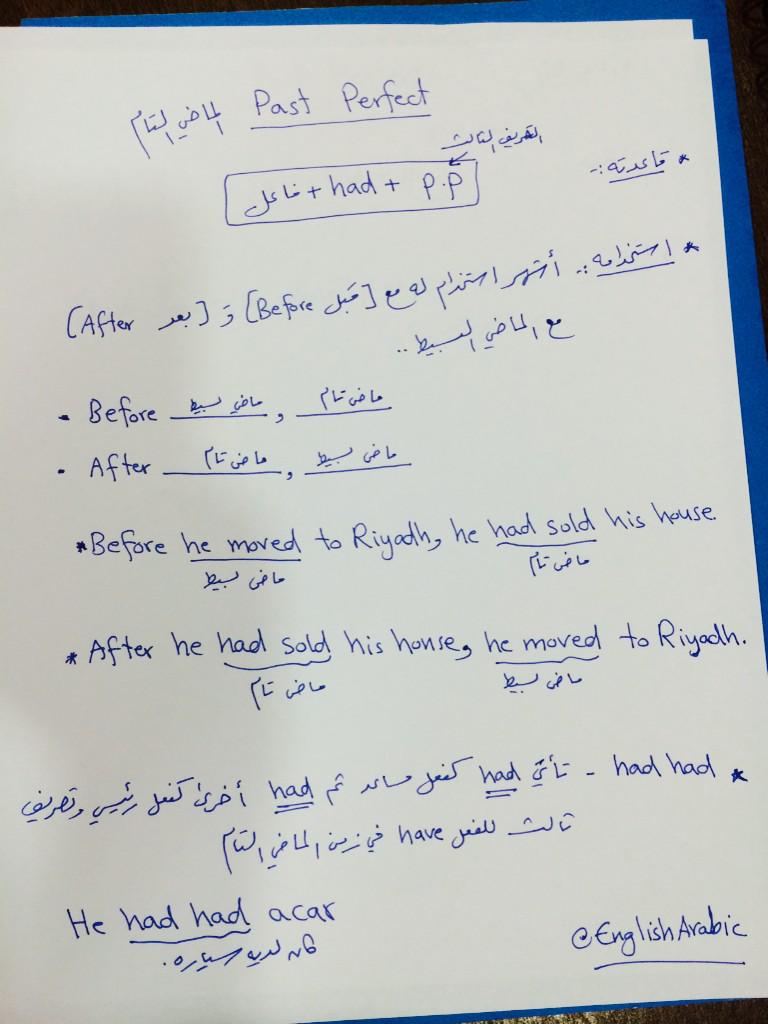 الماضي التام Past Perfect
التصريف الثالث
* قاعدته :-
فاعل + had + p.p
* استخدامه :- أشهر استخدام له مع [قبل Before] و [بعد After]
مع الماضي البسيط ..
- Before ماضي بسيط , ماضي تام
- After ماضي تام , ماضي بسيط
* Before he moved to Riyadh, he had sold his house.
ماضي بسيط ماضي تام
* After he had sold his house, he moved to Riyadh.
ماضي تام ماضي بسيط
* had had - تأتي had كفعل مساعد ثم had أخرى كفعل رئيسي وتصريف
ثالث للفعل have في زمن الماضي التام
He had had a car
كان لديه سياره.
@EnglishArabic